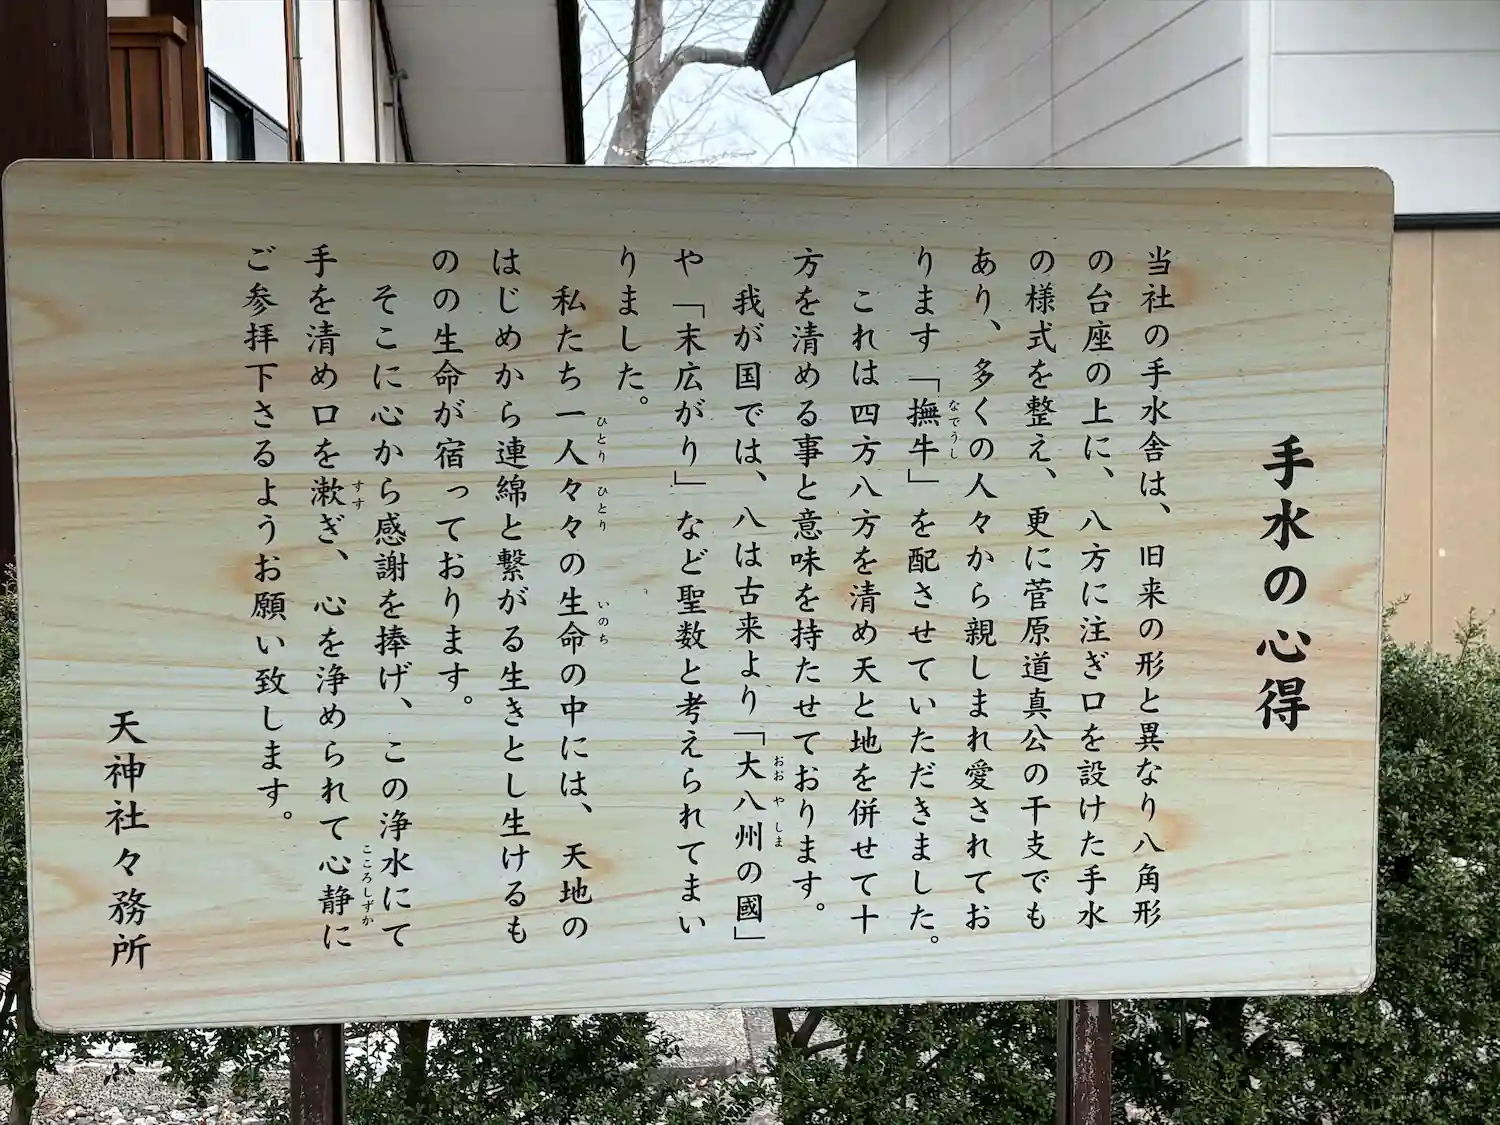 手水の心得
当社の手水舎は、旧来の形と異なり八角形
の台座の上に、八方に注ぎ口を設けた手水
の様式を整え、更に菅原道真公の干支でも
あり、多くの人々から親しまれ愛されてお
ります「撫牛」を配させていただきました。
なでうし
これは四方八方を清め天と地を併せて十
方を清める事と意味を持たせております。
我が国では、八は古来より「大八州の國」
おお や しま
や「末広がり」など聖数と考えられてまい
りました。
私たち一人々々の生命の中には、天地の
ひとり ひとり いのち
はじめから連綿と繋がる生きとし生けるも
のの生命が宿っております。
そこに心から感謝を捧げ、この浄水にて
手を清め口を漱ぎ、心を浄められて心静に
すす こころしずか
ご参拝下さるようお願い致します。
天神社々務所